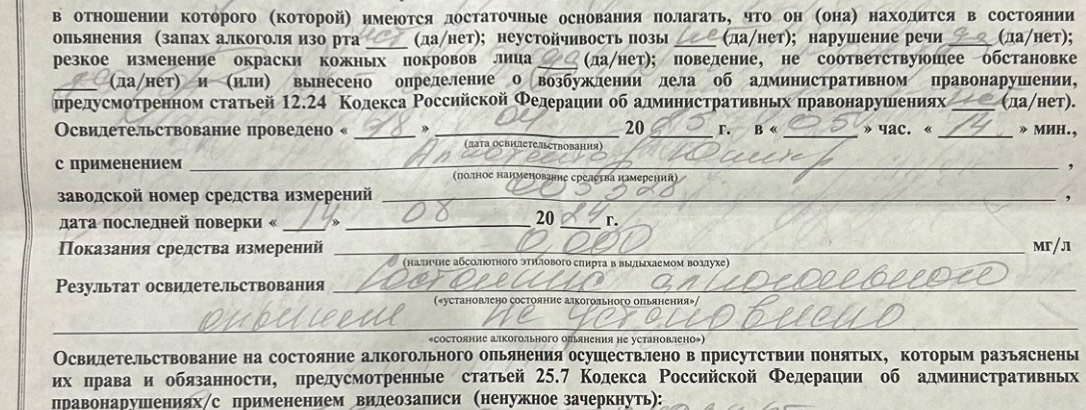 в отношении которого (которой) имеются достаточные основания полагать, что он (она) находится в состоянии
опьянения (запах алкоголя изо рта нет (да/нет); неустойчивость позы не (да/нет); нарушение речи да (да/нет);
резкое изменение окраски кожных покровов лица да (да/нет); поведение, не соответствующее обстановке
да (да/нет) и (или) вынесено определение о возбуждении дела об административном правонарушении,
предусмотренном статьей 12.24 Кодекса Российской Федерации об административных правонарушениях не (да/нет).
Освидетельствование проведено « 28 » 04 20 25 г. в « 05 » час. « 14 » мин.,
(дата освидетельствования)
с применением Алкотектор Юпитер ,
(полное наименование средства измерений)
заводской номер средства измерений 003328 ,
дата последней поверки « 14 » 08 20 24 г.
Показания средства измерений 0,000 мг/л
(наличие абсолютного этилового спирта в выдыхаемом воздухе)
Результат освидетельствования состояние алкогольного
(«установлено состояние алкогольного опьянения»/
опьянения не установлено
«состояние алкогольного опьянения не установлено»)
Освидетельствование на состояние алкогольного опьянения осуществлено в присутствии понятых, которым разъяснены
их права и обязанности, предусмотренные статьей 25.7 Кодекса Российской Федерации об административных
правонарушениях/с применением видеозаписи (ненужное зачеркнуть):